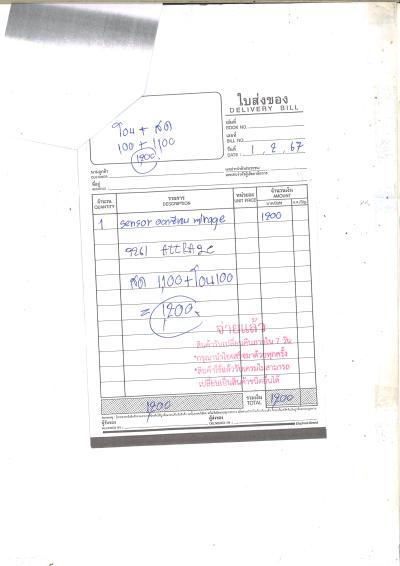 โอน + สด
100 + 1100
1200
ใบส่งของ
DELIVERY BILL
เล่มที่
BOOK NO.
เลขที่
BILL NO.
วันที่
DATE 1 , 2 , 67
นามลูกค้า
CUSTOMER
ที่อยู่
ADDRESS
จำนวน
QUANTITY
รายการ
DESCRIPTION
หน่วยละ
UNIT PRICE
จำนวนเงิน
AMOUNT
1 sensor ออกซิเจน mirage 1200
9261 Attrage
สด 1,100 + โอน 100
= 1200
จ่ายแล้ว
สินค้ารับเปลี่ยนคืนภายใน 7 วัน
*กรุณานำใบเสร็จมาด้วยทุกครั้ง
*สินค้าใช้แล้วรับเคลมไม่สามารถ
เปลี่ยนเป็นสินค้าชนิดอื่นได้
1200 รวมเงิน TOTAL 1200
ผู้รับของ
RECEIVED BY
ผู้ส่งของ
DELIVERED BY